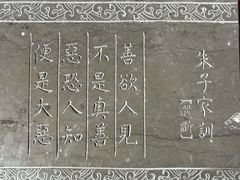 朱子家訓
善欲人見
不是真善
惡恐人知
便是大惡